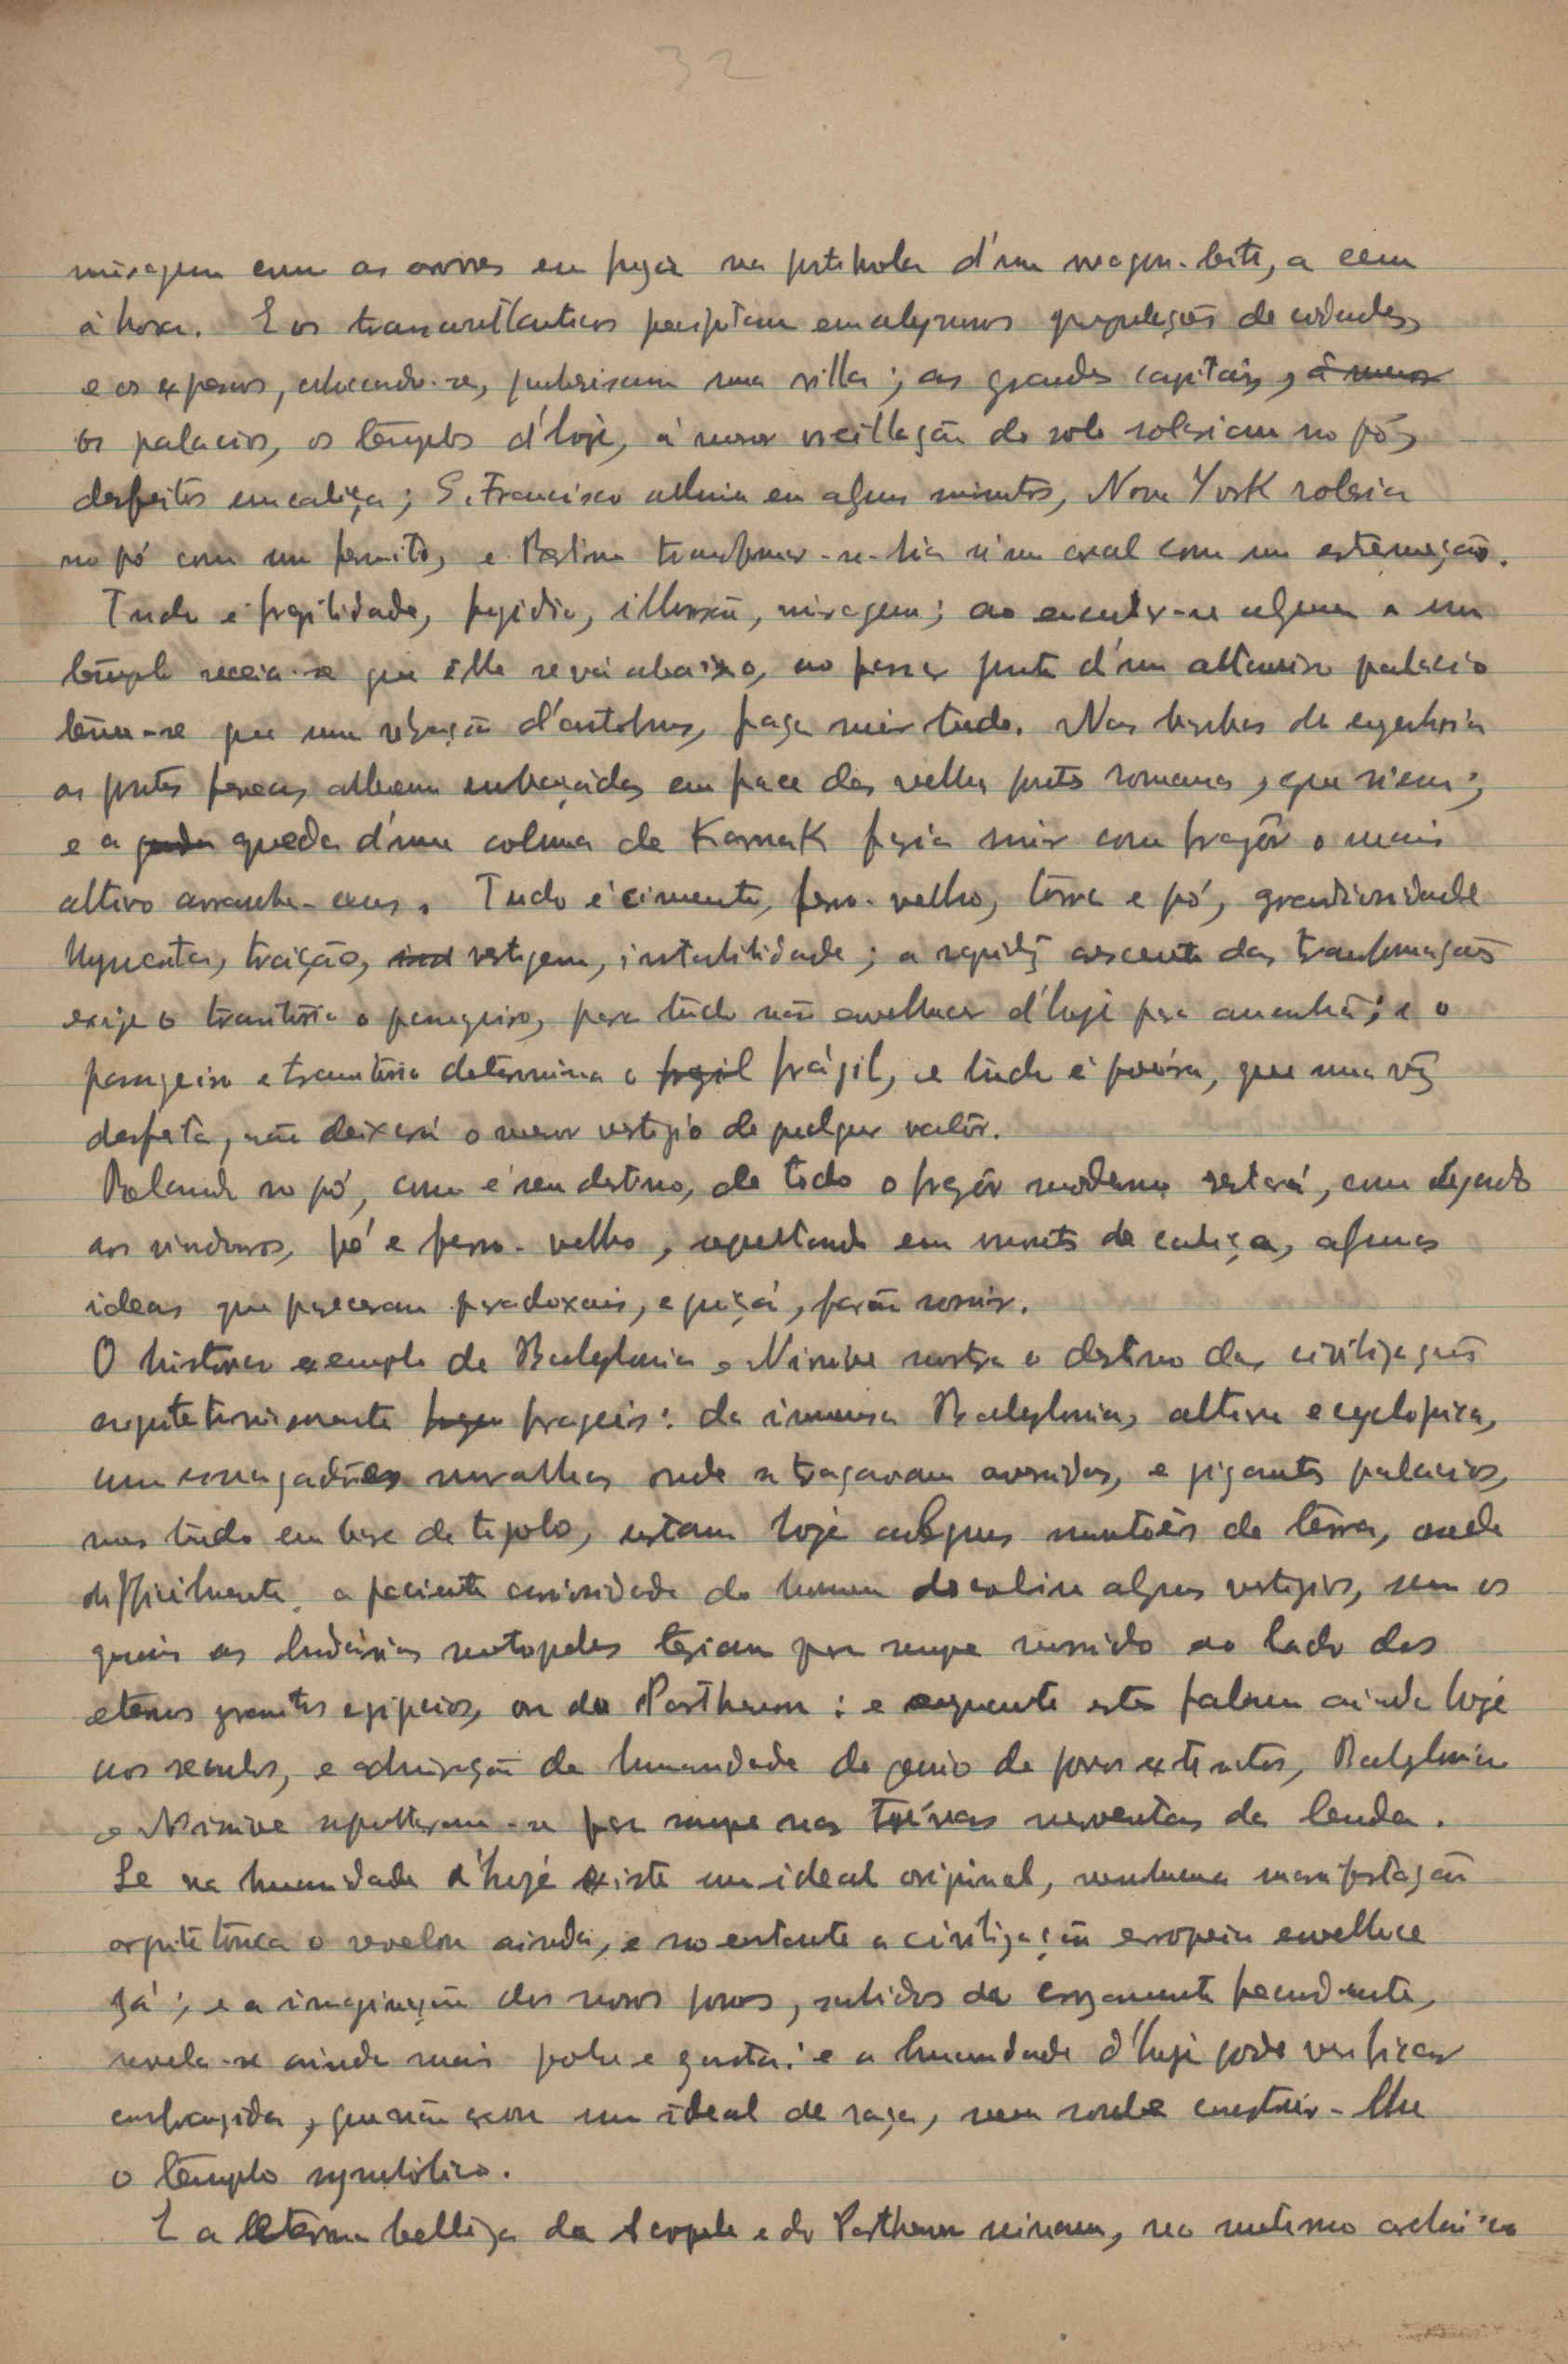 32
miragem como as arvores em fuga na portinhola d'um wagon-leito, a cem
á hora. E os transatlanticos precipitam em alguns populações de cidades,
e os expressos, chocando-se, pulverisam uma villa; as grandes capitáis, á menor
os palacios, os templos d'hoje, á menor oscillação do solo rolariam no pó,
desfeitos em caliça; S. Francisco alluiu em alguns minutos, Nova York rolaria
no pó com um fremito, e Berlim transformar-se-hia n'um areal com um estremeção.
Tudo é fragilidade, fugidio, illusão, miragem; ao encostar-se alguem a um
templo receia-se que elle se vá abaixo, ao passar junto d'um altaneiro palacio
teme-se que uma vibração d'autobus, faça ruir tudo. Nas linhas de engenharia
as pontes ferreas alluem envergonhadas em face das velhas pontes romanas, que riem;
e a queda d'uma coluna de Karnak faria ruir com fragôr o mais
altivo arranha-ceus. Tudo é cimento, ferro-velho, terra e pó, grandiosidade
traição, vertigem, instabilidade; a rapidez crescente das transformações
exige o transitório o passageiro, para tudo não envelhecer d'hoje para amanhã; e o
passageiro e transitório determina o fragil frágil, e tudo é poeira, que uma vêz
desfeita, não deixará o menor vestigio de qualquer valôr.
Rolando no pó, como é seu destino, de todo o fragôr moderno restará, como legado
aos vindouros, pó e ferro-velho, sepultando em montes de caliça, algumas
ideas que pareceram paradoxais, e quiçá, farão sorrir.
O historico exemplo de Babylonia e Ninive mostra o destino das civilizações
arquitetonicamente frageis: da immensa Babylonia, altiva e cyclopica,
com esmagadôras muralhas onde se traçavam avenidas, e gigantes palacios,
mas tudo em base de tijolo, restam hoje alguns montões de terra, onde
difficilmente a paciente curiosidade do homem descobriu alguns vestigios, sem os
quais as lendárias metropoles teriam para sempre morrido ao lado dos
eternos granitos egipcios, ou do Parthenon: e emquanto estes falam ainda hoje
aos seculos, e admiração da humanidade do genio de povos extinctos, Babylonia
e Ninive sepultaram-se para sempre nas trévas nevoentas da lenda.
Se na humanidade d'hoje existe um ideal original, nenhuma manifestação
arquitetónica o revelou ainda, e no entanto a civilização europeia envelhece
já; e a imaginação dos novos povos, sahidos de cruzamento fecundante,
revela-se ainda mais pobre e gasta: e a humanidade d'hoje pode verificar
confrangida, que não creou um ideal de raça, nem soube construir-lhe
o templo symbólico.
E a eterna belleza da Acropole e do Parthenon reinam, no arcaico